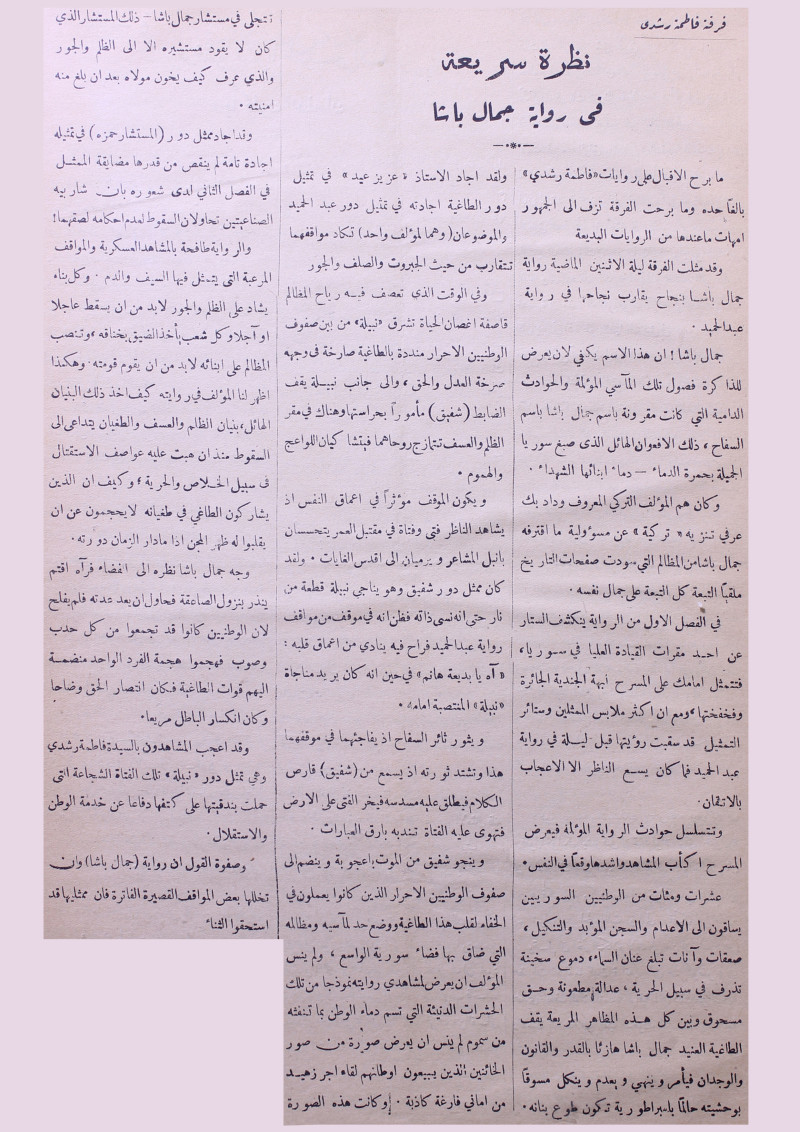 فرقة فاطمة رشدى
نظرة سريعة
فى رواية جمال باشا
ما برح الاقبال على روايات «فاطمة رشدي»
بالغاً حده وما برحت الفرقة تزف الى الجمهور
امهات ماعندها من الروايات البديعة
وقد مثلت الفرقة ليلة الاثنين الماضية رواية
جمال باشا بنجاح يقارب نجاحها في رواية
عبد الحميد .
جمال باشا ! ان هذا الاسم يكفي لان يعرض
للذاكرة فصول تلك المآسي المؤلمة والحوادث
الدامية التي كانت مقرونة باسم جمال باشا باسم
السفاح ، ذلك الافعوان الهائل الذى صبغ سوريا
الجميلة بحمرة الدماء — دماء ابنائها الشهداء .
وكان هم المؤلف التركي المعروف وداد بك
عرفي تنزيه « تركية » عن مسؤولية ما اقترفه
جمال باشا من المظالم التي سودت صفحات التاريخ
ملقياً التبعة كل التبعة على جمال نفسه .
في الفصل الاول من الرواية ينكشف الستار
عن احد مقرات القيادة العليا في سوريا ،
فتتمثل امامك على المسرح نبهة الجندية الجائرة
وفخفختها ، ومع ان اكثر ملابس الممثلين وستائر
التمثيل قد سبقت رؤيتها قبل ليلة في رواية
عبد الحميد فما كان يسع الناظر الا الاعجاب
بالاتقان .
وتتسلسل حوادث الرواية المؤلمة فيعرض
المسرح اكأب المشاهد واشدها وقعاً في النفس .
عشرات ومئات من الوطنيين السوريين
يساقون الى الاعدام والسجن المؤبد والتنكيل ،
صعقات وآنات تبلغ عنان السماء ، دموع سخينة
تذرف في سبيل الحرية ، عدالة مطعونة وحق
مسحوق وبين كل هذه المظاهر المريعة يقف
الطاغية العنيد جمال باشا هازئا بالقدر والقانون
والوجدان فيأمر وينهي ويعدم وينكل مسوقا
بوحشيته حالماً بامبراطورية تكون طوع بنانه .
ولقد اجاد الاستاذ « عزيز عيد » في تمثيل
دور الطاغية اجادته في تمثيل دور عبد الحميد
والموضوعان (وهما لمؤلف واحد) تكاد مواقفهما
تتقارب من حيث الجبروت والصلف والجور
وفي الوقت الذى تعصف فيه رياح المظالم
قاصفة اغصان الحياة تشرق «نبيلة» من بين صفوف
الوطنيين الاحرار منددة بالطاغية صارخة في وجهه
صرخة العدل والحق ، والى جانب نبيلة يقف
الضابط (شفيق) مأموراً بحراستها وهناك في مقر
الظلم والعسف تتمازج روحاهما فيتشا كيان اللواعج
والهموم .
ويكون الموقف مؤثراً في اعماق النفس اذ
يشاهد الناظر فتى وفتاة في مقتبل العمر يتحسسان
بانبل المشاعر ويرميان الى اقدس الغايات . ولقد
كان ممثل دور شفيق وهو يناجي نبيلة قطعة من
نار حتى انه نسى ذاته فظن انه في موقف من مواقف
رواية عبد الحميد فراح فيه ينادي من اعماق قلبه :
«آه يا بديعة هانم» في حين انه كان يريد مناجاة
«نبيلة» المنتصبة امامه .
ويثور ثائر السفاح اذ يفاجئهما في موقفهما
هذا وتشتد ثورته اذ يسمع من (شفيق) قارص
الكلام فيطلق عليه مسدسه فيخر الفتى على الارض
فتهوى عليه الفتاة تندبه بارق العبارات .
وينجو شفيق من الموت باعجوبة وينضم الى
صفوف الوطنيين الاحرار الذين كانوا يعملون في
الخفاء لقلب هذا الطاغية ووضع حد لمآسيه ومظالمه
التي ضاق بها فضاء سورية الواسع ، ولم ينس
المؤلف ان يعرض لمشاهدي روايته نموذجا من تلك
الحشرات الدنيئة التي تسم دماء الوطن بما تنفثه
من سموم لم ينس ان يعرض صورة من صور
الخائنين الذين يبيعون اوطانهم لقاء اجر زهيد
من اماني فارغة كاذبة . وكانت هذه الصورة
تتجلى في مستشار جمال باشا – ذلك المستشار الذي
كان لا يقود مستشيره الا الى الظلم والجور
والذي عرف كيف يخون مولاه بعد ان بلغ منه
امنيته .
وقد اجاد ممثل دور (المستشار حمزه) في تمثيله
اجادة تامة لم ينقص من قدرها مضايقة الممثل
في الفصل الثاني لدى شعوره بان شاربيه
الصناعيتين تحاولان السقوط لعدم احكامه لصقهما !
والرواية طافحة بالمشاهد العسكرية والمواقف
المرعبة التى يتمثل فيها السيف والدم . وكل بناء
يشاد على الظلم والجور لابد من ان يسقط عاجلا
او آجلا وكل شعب يأخذ الضيق بخناقه ، وتنصب
المظالم على ابنائه لابد من ان يقوم قومته . وهكذا
اظهر لنا المؤلف في روايته كيف اخذ ذلك البنيان
الهائل ، بنيان الظلم والعسف والطغيان يتداعى الى
السقوط منذ ان هبت عليه عواصف الاستقتال
فى سبيل الخلاص والحرية ؛ وكيف ان الذين
يشاركون الطاغي في طغيانه لايحجمون عن ان
يقلبوا له ظهر المجن اذا مادار الزمان دورته .
وجه جمال باشا نظره الى الفضاء فرآه اقتم
ينذر بنزول الصاعقة فحاول ان يعد عدته فلم يفلح
لان الوطنيين كانوا قد تجمعوا من كل حدب
وصوب فهجموا هجمة الفرد الواحد منضمة
اليهم قوات الطاغية فكان انتصار الحق وضاحا
وكان انكسار الباطل مريعا .
وقد اعجب المشاهدون بالسيدة فاطمة رشدي
وهي تمثل دور « نبيلة » تلك الفتاة الشجاعة التى
حملت بندقيتها على كتفها دفاعا عن خدمة الوطن
والاستقلال .
وصفوة القول ان رواية (جمال باشا) وان
تخللها بعض المواقف القصيرة الفاترة فان ممثليها قد
استحقوا الثناء